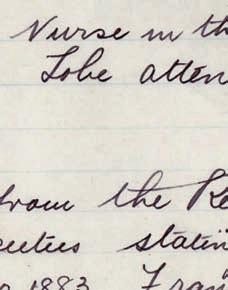 Nurse in th
Lobe atten
from the Re
statin
1883 Fran